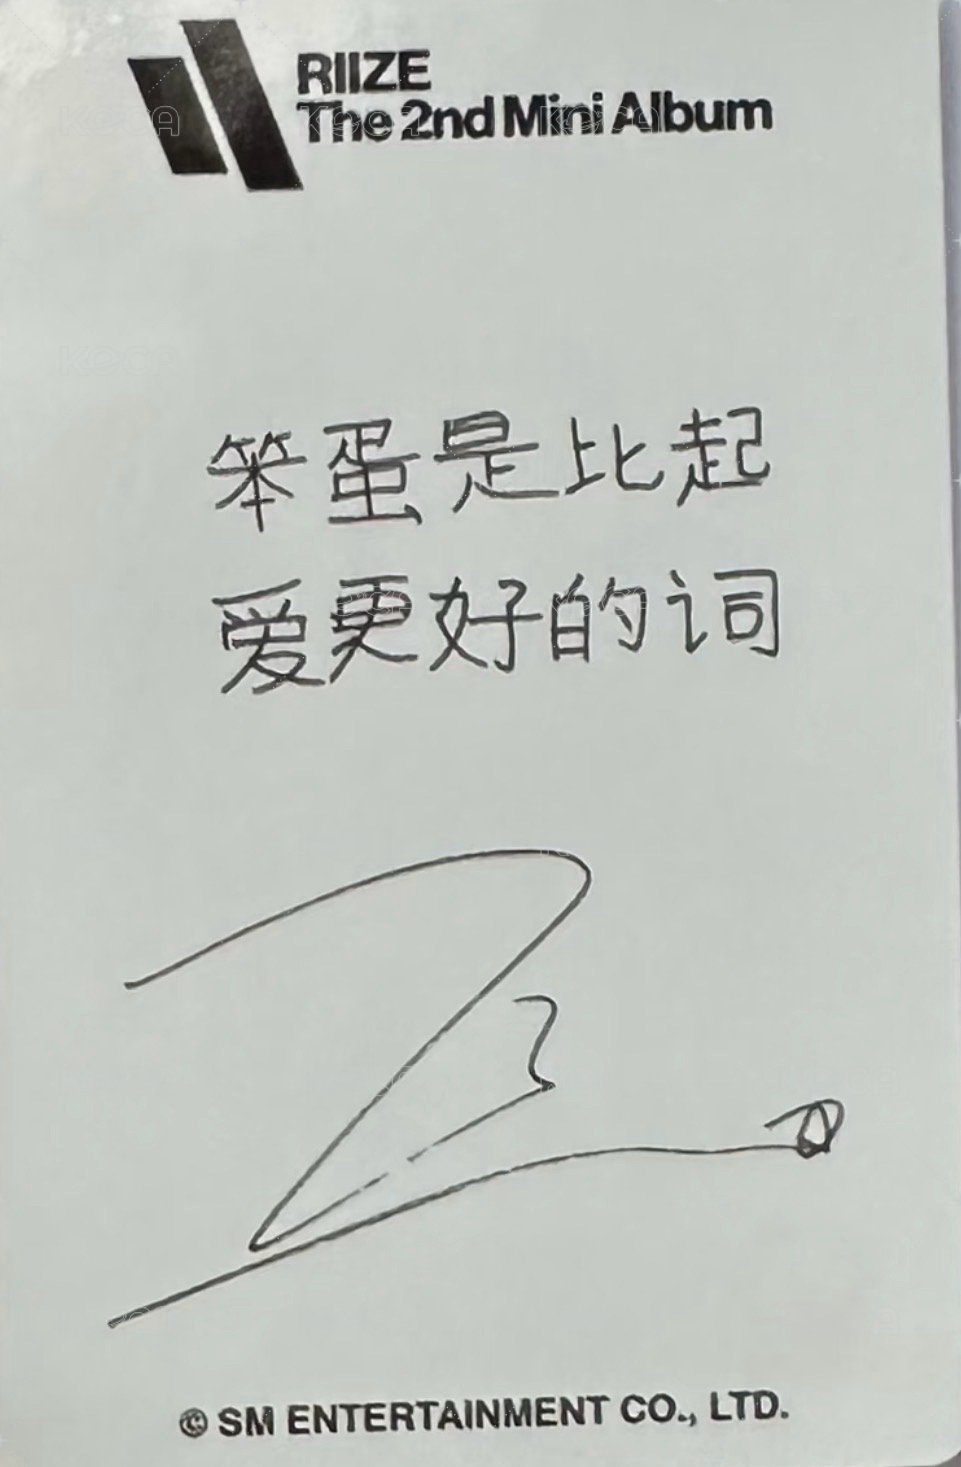 RIIZE
The 2nd Mini Album
笨蛋是比起
爱更好的词
© SM ENTERTAINMENT CO., LTD.